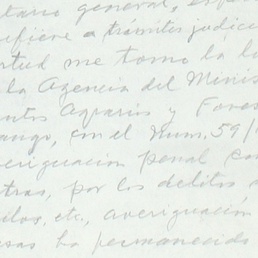 tario general, esp
refiere a trámites judici
rtud me tomo la li
la Agencia del Minis
ntos Agrarios y Fores
ango, con el num. 59/
eriguación penal con
tras, por los delitos d
dos, etc, averiguación
sas ha permanecido